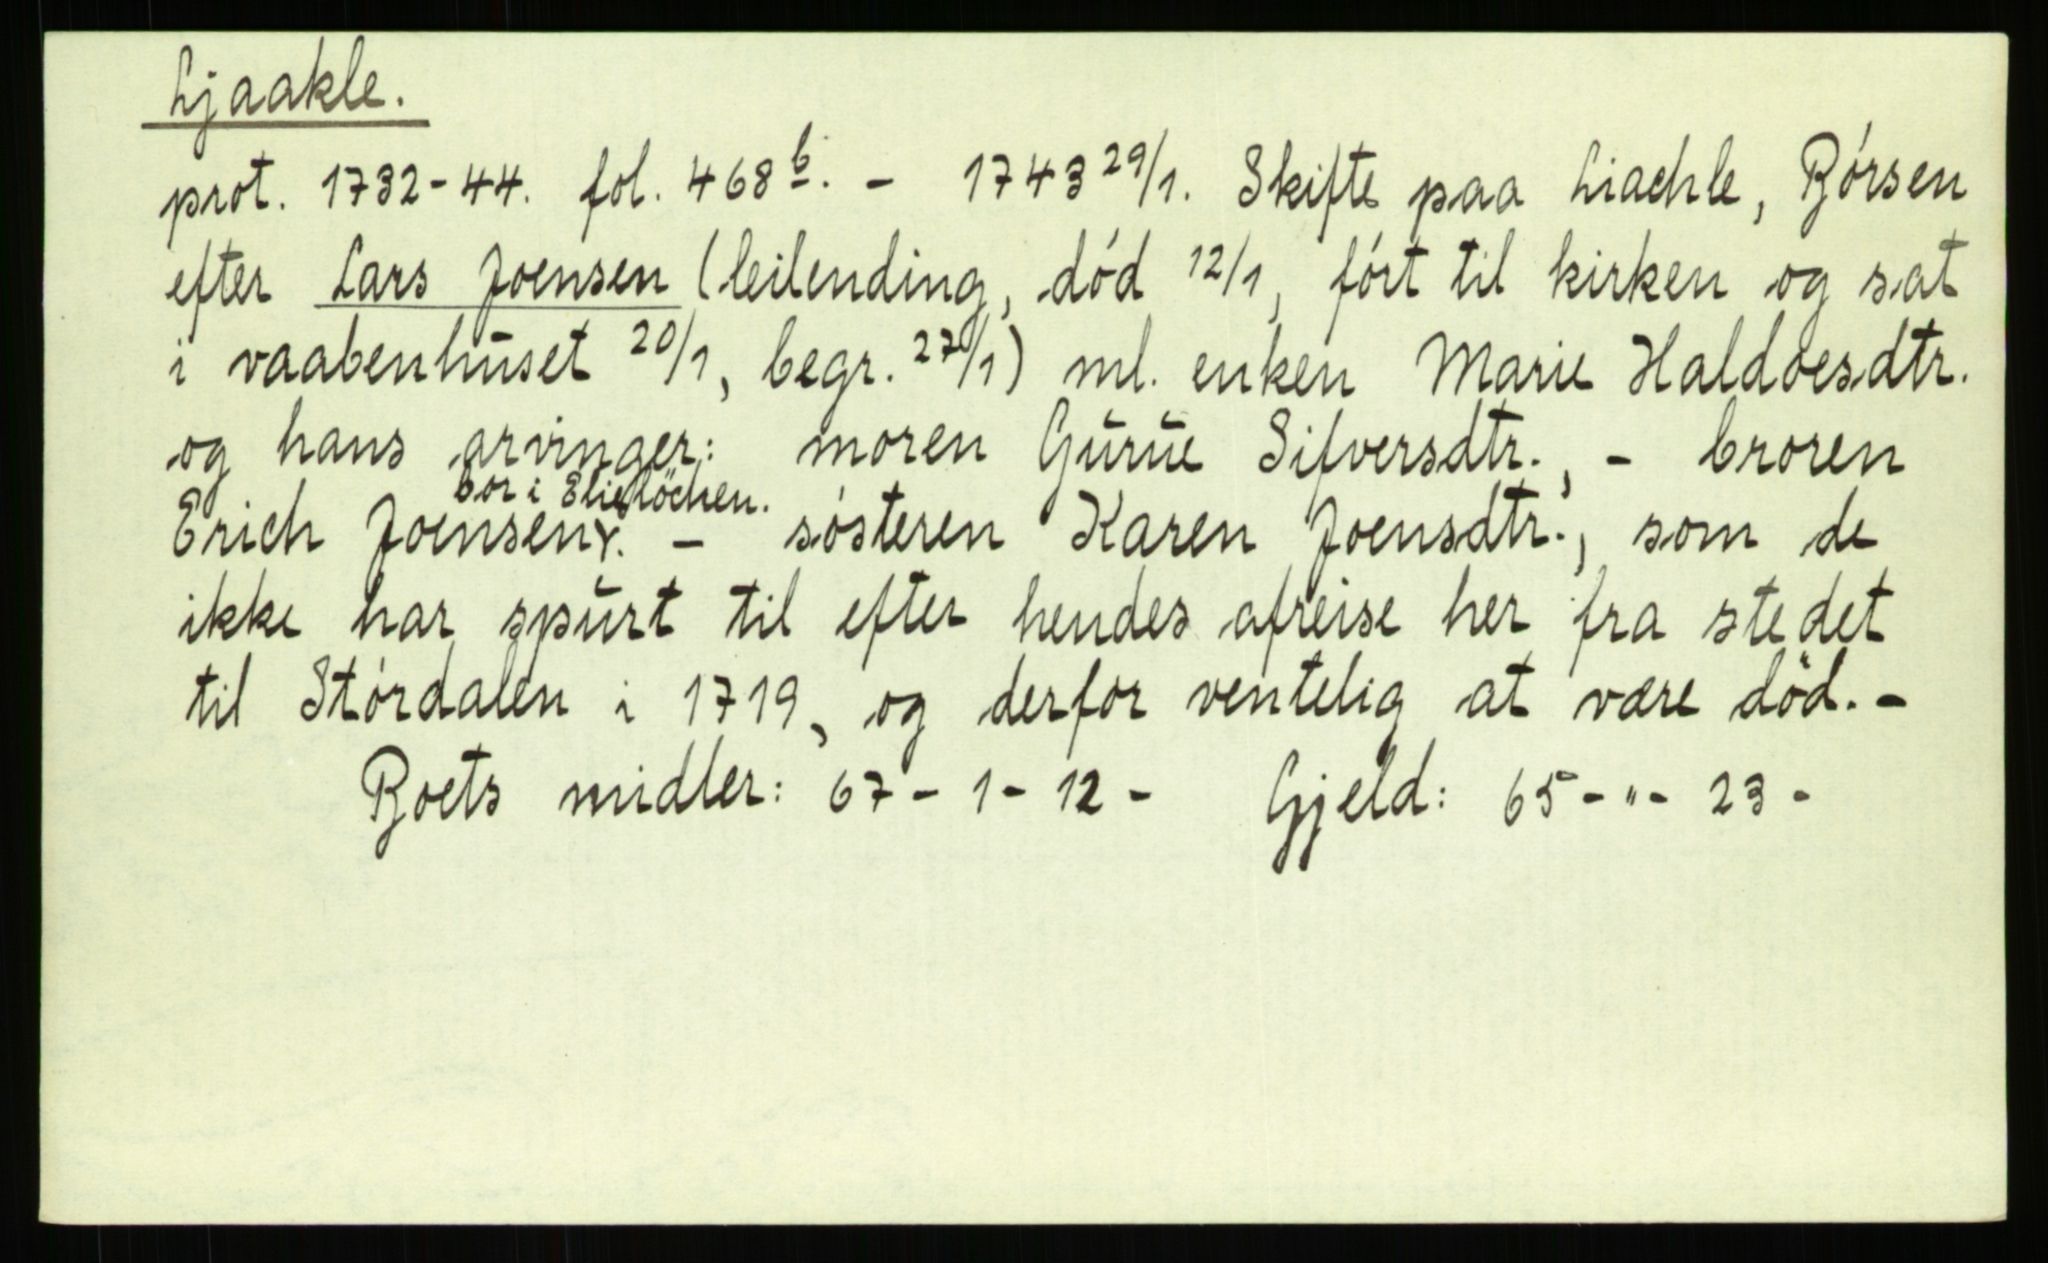 Ljaakle.
prot. 1732-44. fol. 468b. - 1743 29/1. Skifte paa Liachle, Børsen
efter Lars Joensen (leilending, død 12/1, ført til kirken og sat
i vaabenhuset 20/1, begr. 27/1) ml. enken Marie Haldoesdtr.
og hans arvinger: moren Gurue Sifversdtr., - broren
bor i
Erich Joensen. - søsteren Karen Joensdtr., som de
ikke har spurt til efter hendes afreise her fra stedet
til Størdalen i 1719, og derfor ventelig at være död. -
Boets midler: 67 - 1 - 12 - Gjeld: 65 - " - 23 -